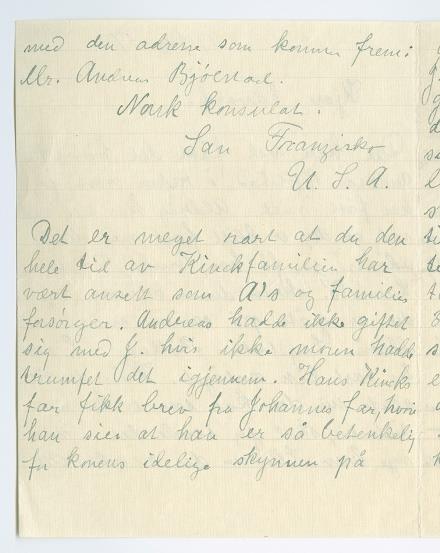 med den adresse som kommer frem:
Mr. Andreas Bjölstad.
Norsk konsulat.
San Franzisko
U. S. A.
Det er meget rart at du den
hele tid av Kinckfamilien har
vært ansett som A's og families
forsörger. Andreas hadde ikke giftet
sig med J. hvis ikke moren hadde
trumfet det igjennem. Hans Kincks
far fikk brev fra Johannes far, hvori
han sier at han er så betenkelig
for konens idelige skynnen på